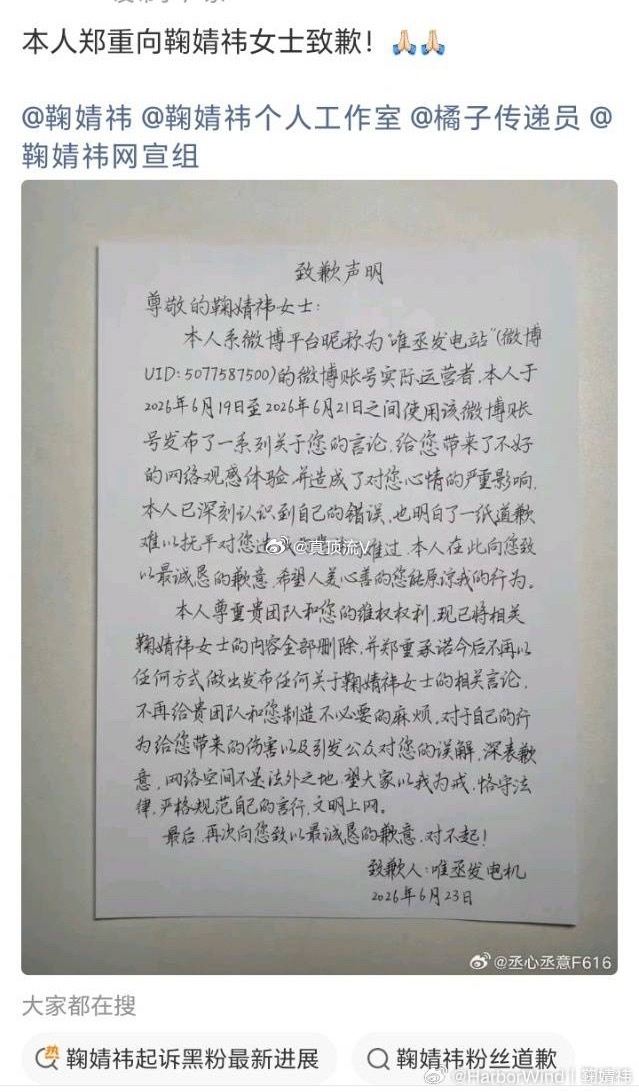 本人郑重向鞠婧祎女士致歉！🙏🏻🙏🏻
@鞠婧祎 @鞠婧祎个人工作室 @橘子传递员 @
鞠婧祎网宣组
致歉声明
尊敬的鞠婧祎女士：
本人系微博平台昵称为“唯丞发电站”(微博
UID:5077587500)的微博账号实际运营者，本人于
2026年6月19日至2026年6月21日之间使用该微博账
号发布了一系列关于您的言论，给您带来了不好
的网络观感体验，并造成了对您心情的严重影响，
本人已深刻认识到自己的错误，也明白了一纸道歉
难以抚平对您造成 难过，本人在此向您致
@真顶流V
以最诚恳的歉意，希望人美心善的您能原谅我的行为。
本人尊重贵团队和您的维权权利，现已将相关
鞠婧祎女士的内容全部删除，并郑重承诺今后不再以
任何方式做出发布任何关于鞠婧祎女士的相关言论，
不再给贵团队和您制造不必要的麻烦，对于自己的行
为给您带来的伤害以及引发公众对您的误解，深表歉
意，网络空间不是法外之地，望大家以我为戒，恪守法
律，严格规范自己的言行，文明上网。
最后，再次向您致以最诚恳的歉意，对不起！
致歉人：唯丞发电机
2026年6月23日
@丞心丞意F616
大家都在搜
鞠婧祎起诉黑粉最新进展
鞠婧祎粉丝道歉
@HarborWind
鞠婧祎